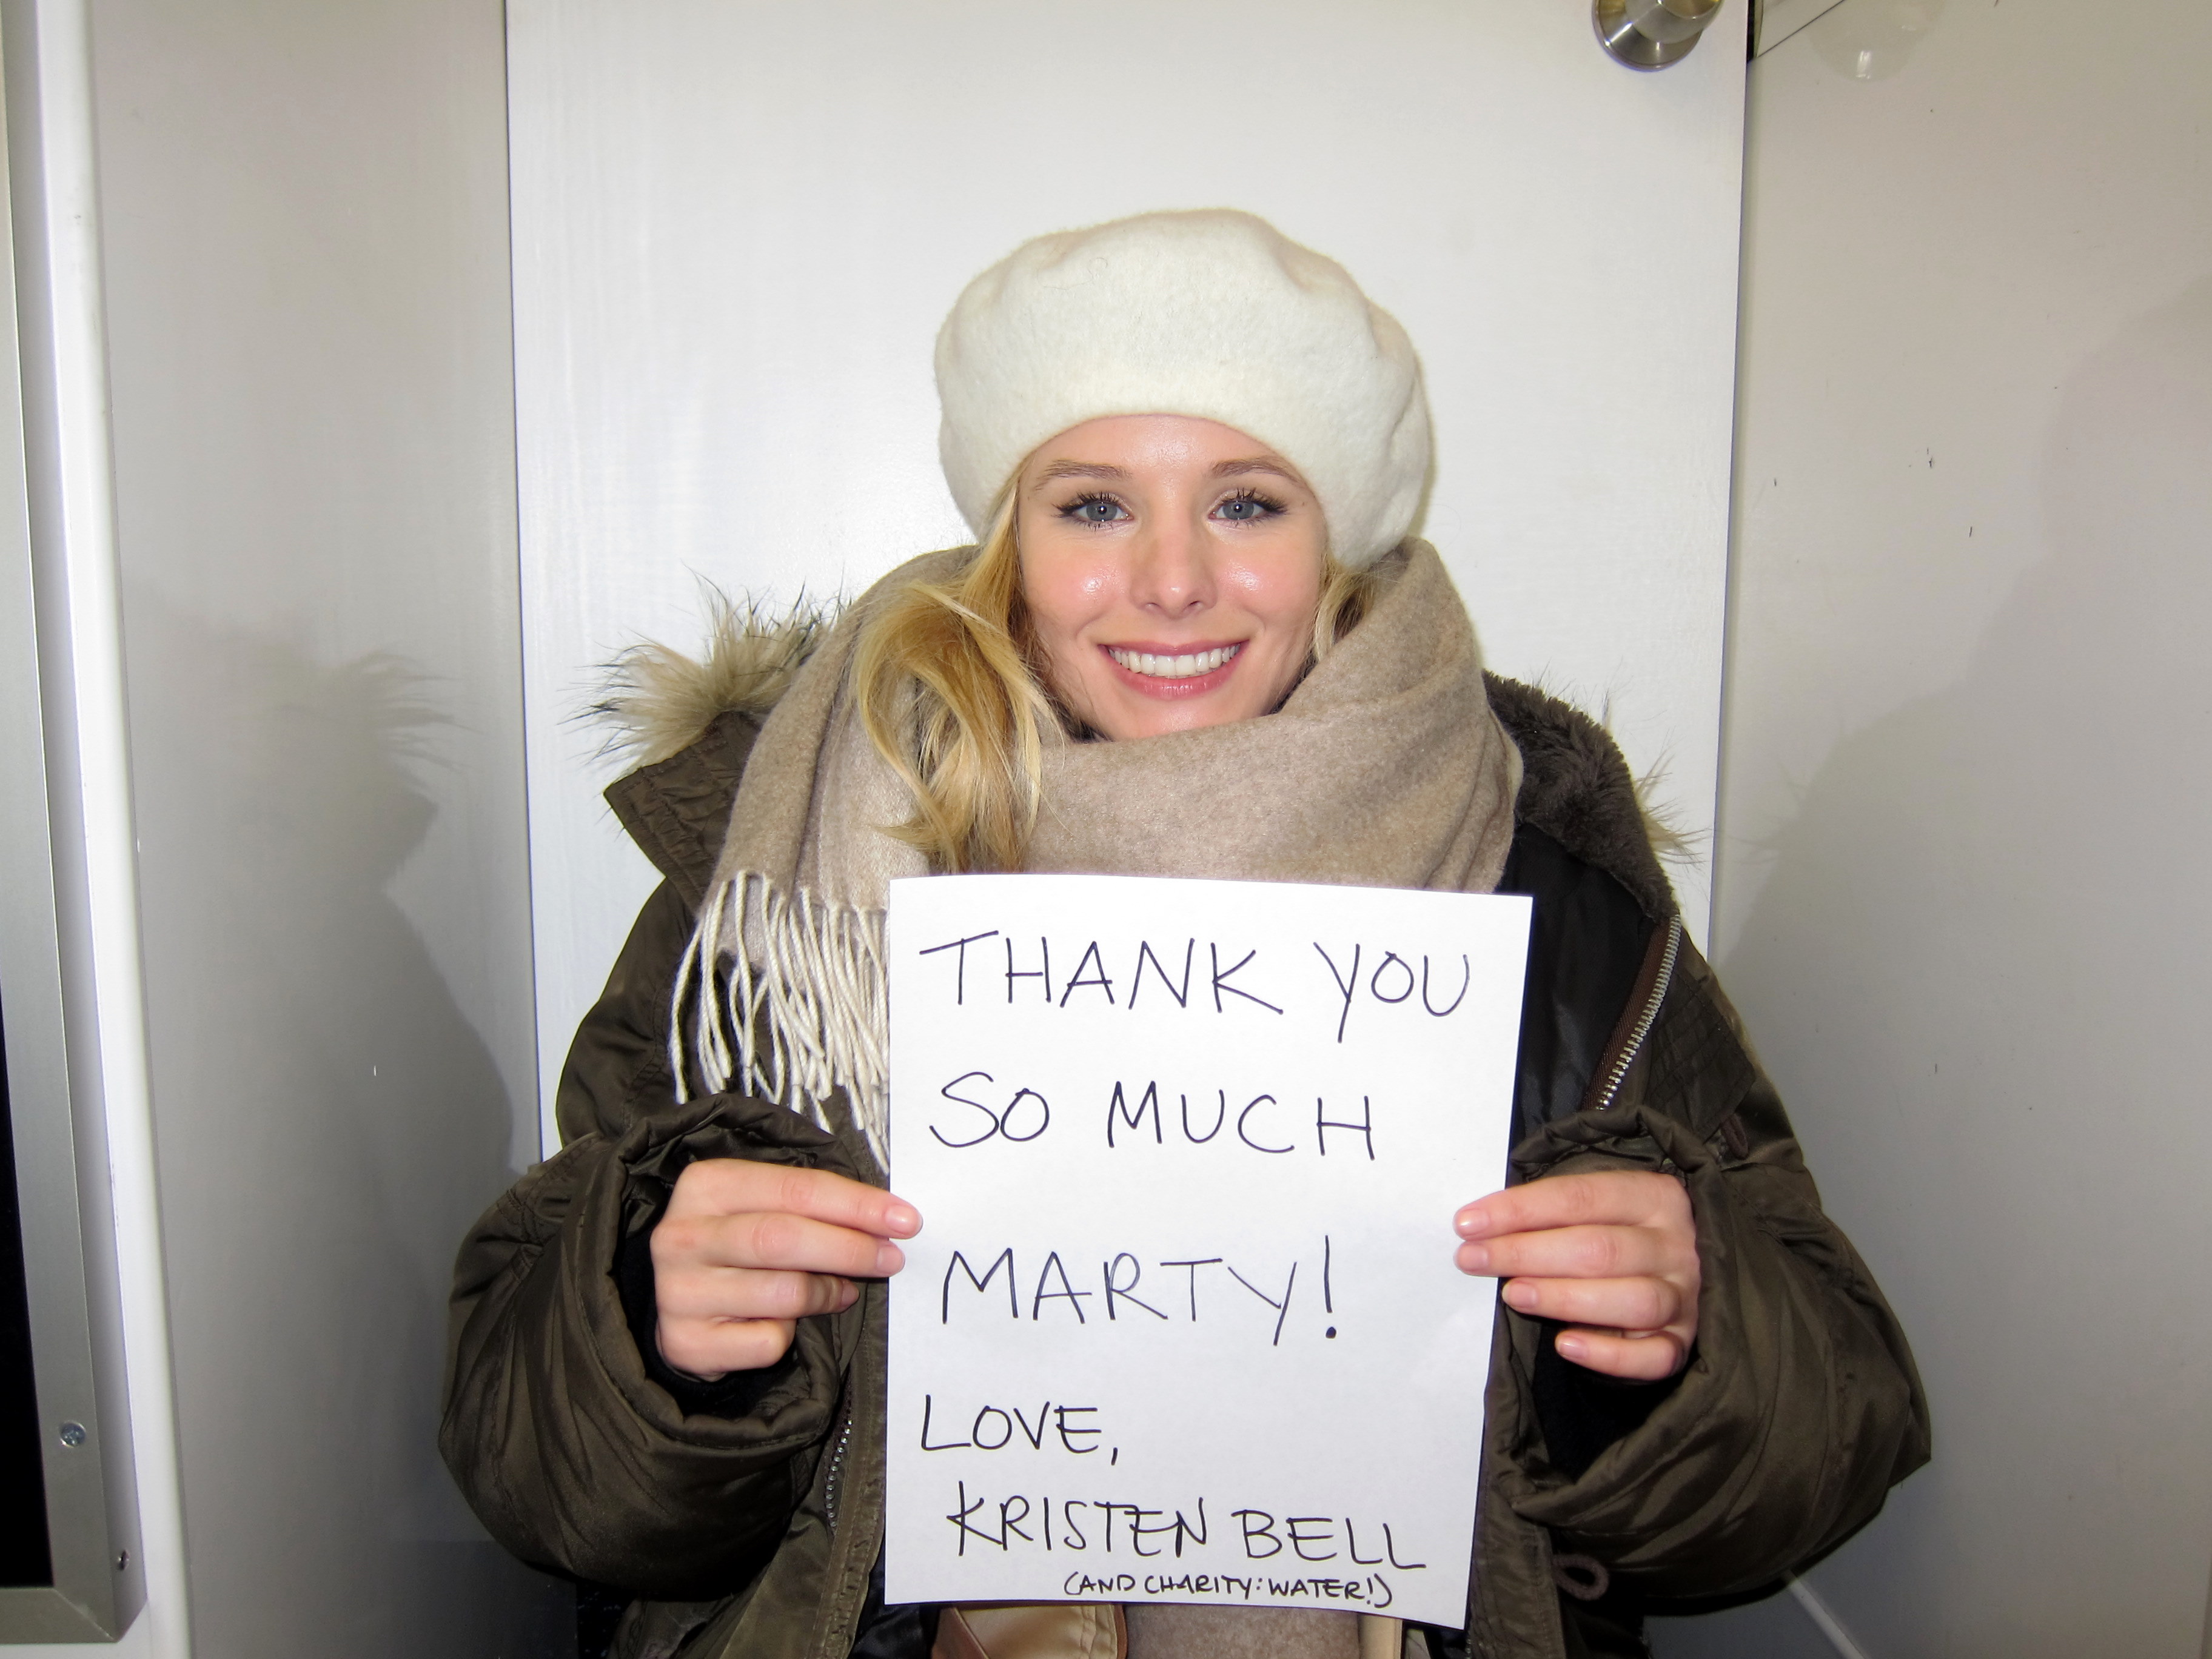 THANK YOU
SO MUCH
MARTY!
LOVE,
KRISTEN BELL
(AND CHARITY: WATER!)